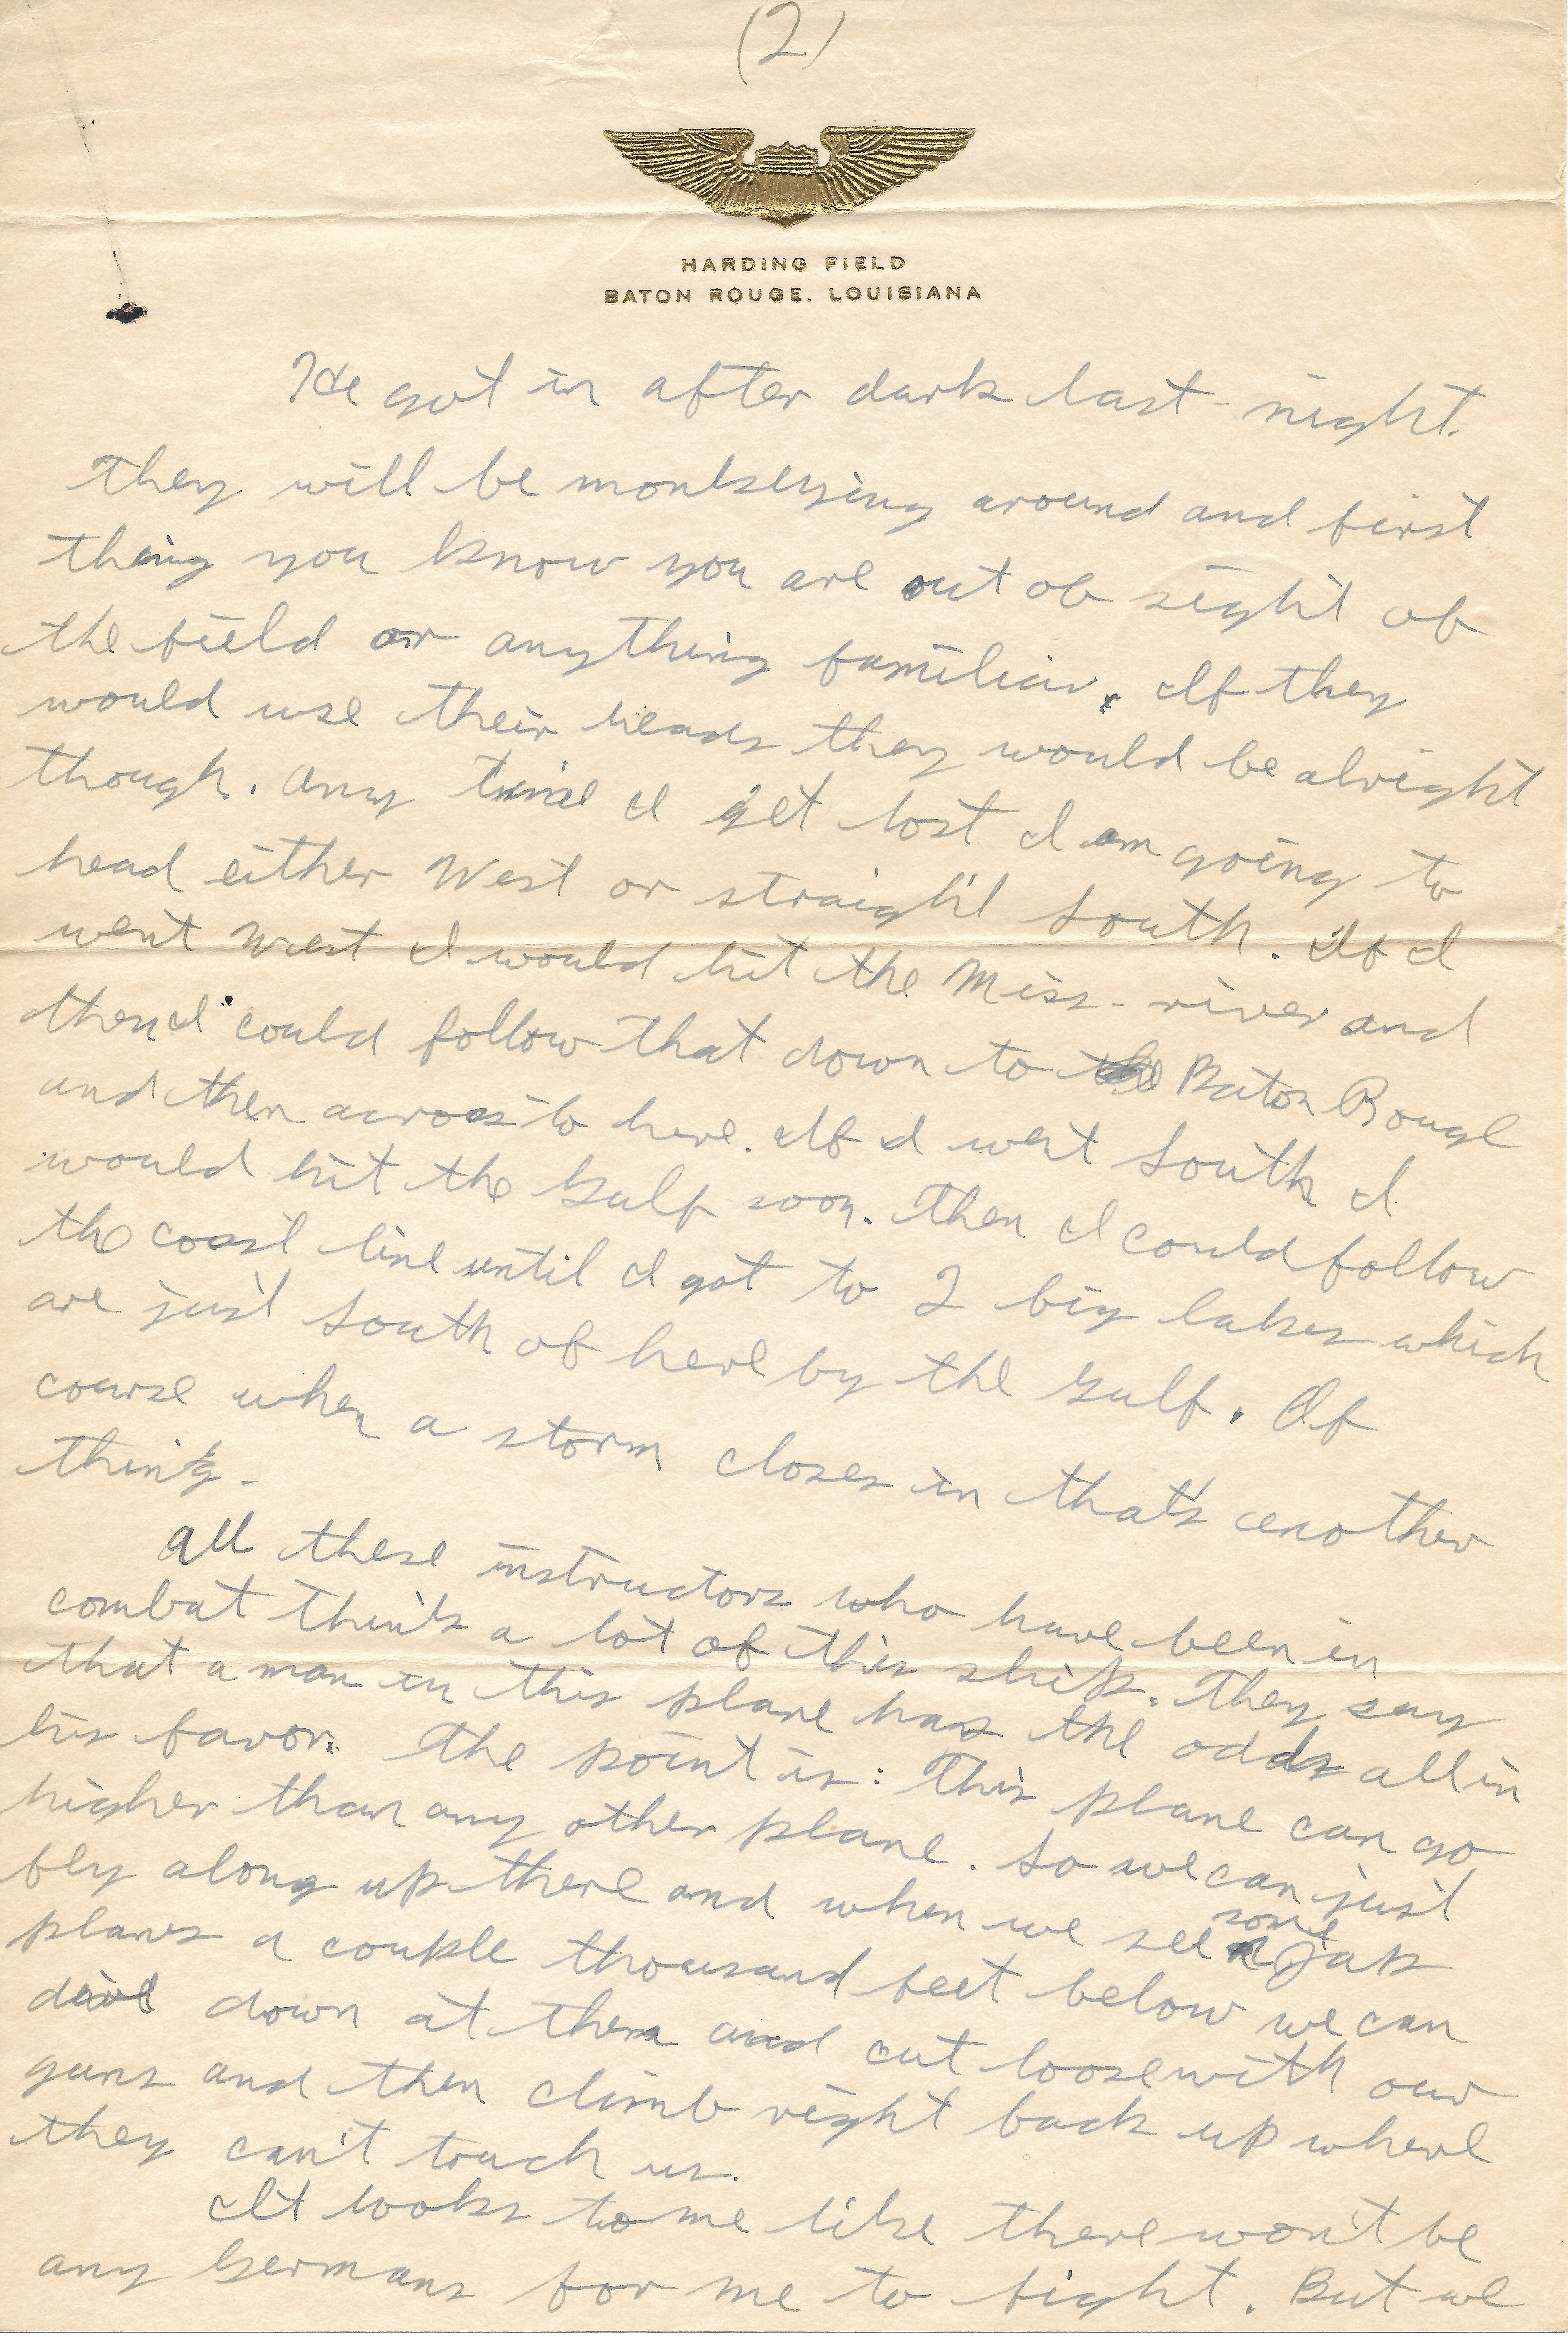 (2)
HARDING FIELD
BATON ROUGE, LOUISIANA
He got in after dark last night.
They will be monkeying around and first
thing you know you are out of sight of
the field or anything familiar. If they
would use their heads they would be alright
though. Any time I get lost I am going to
head either West or straight South. If I
went West I would hit the Miss. river and
then I could follow that down to Baton Rouge
and then across to here. If I went South I
would hit the Gulf soon. Then I could follow
the coast line until I got to 2 big lakes which
are just South of here by the Gulf. Of
course when a storm closes in that's another
thing.
All these instructors who have been in
combat think a lot of this ship. They say
that a man in this plane has the odds all in
his favor. The point is: This plane can go
higher than any other plane. So we can just
fly along up there and when we see some Jap
planes a couple thousand feet below we can
dive down at them and cut loose with our
guns and then climb right back up where
they can't touch us.
It looks to me like there won't be
any Germans for me to fight. But we